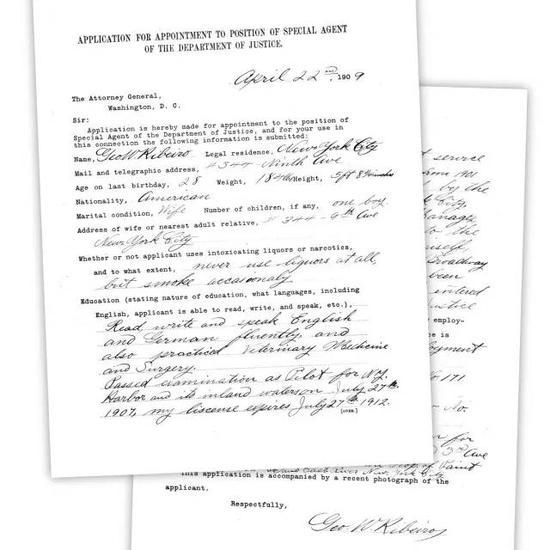 APPLICATION FOR APPOINTMENT TO POSITION OF SPECIAL AGENT
OF THE DEPARTMENT OF JUSTICE.
April 22nd, 1909
The Attorney General,
Washington, D. C.
Sir:
Application is hereby made for appointment to the position of
Special Agent of the Department of Justice, and for your use in
this connection the following information is submitted:
Name, Geo W Ribeiro Legal residence, New York City
Mail and telegraphic address, 344 Ninth Ave
Age on last birthday, 28 Weight, 184 Height, 5ft 8
Nationality, American
Marital condition, Wife Number of children, if any, one boy
Address of wife or nearest adult relative, 344 - 9th Ave
New York City
Whether or not applicant uses intoxicating liquors or narcotics,
and to what extent, never use liquors at all,
but smoke accasionaly
Education (stating nature of education, what languages, including
English, applicant is able to read, write, and speak, etc.),
Read write and speak English
and German fluently, and
also practical Veterinary Medicine
and Surgery.
Passed examination as Pilot for N.Y.
Harbor and its inland waters on July 27th
1907, my liscense expires July 27th 1912.
(OVER)
service
from
by the
City,
Manager
to the
Broadway
been
entered
Justice
employ-
is
171
No.
for
3rd Ave
This application is accompanied by a recent photograph of the
applicant.
Respectfully,
Geo. W. Ribeiro